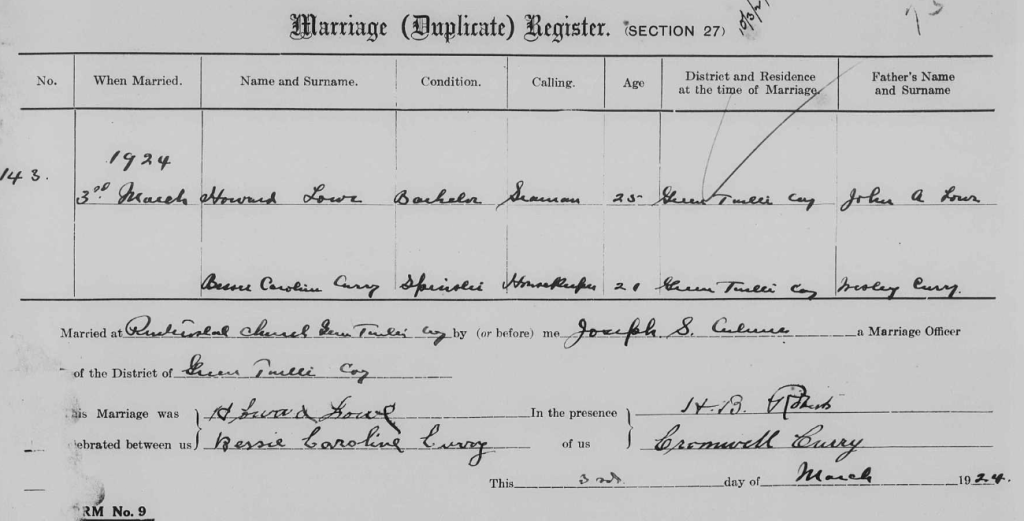 Marriage (Duplicate) Register. (SECTION 27)
No. When Married. Name and Surname. Condition. Calling. Age District and Residence at the time of Marriage. Father's Name and Surname
1924
143. 3rd March Howard Lowe Bachelor Seaman 25 Green Turtle Cay John A Lowe
Bessie Caroline Curry Spinster Housekeeper 21 Green Turtle Cay Wesley Curry.
Married at Church Green Turtle Cay by (or before) me Joseph S. a Marriage Officer
of the District of Green Turtle Cay
his Marriage was Howard Lowe In the presence H. B. Roberts
ebrated between us Bessie Caroline Curry of us Cromwell Curry
This 3rd day of March 1924.
RM No. 9